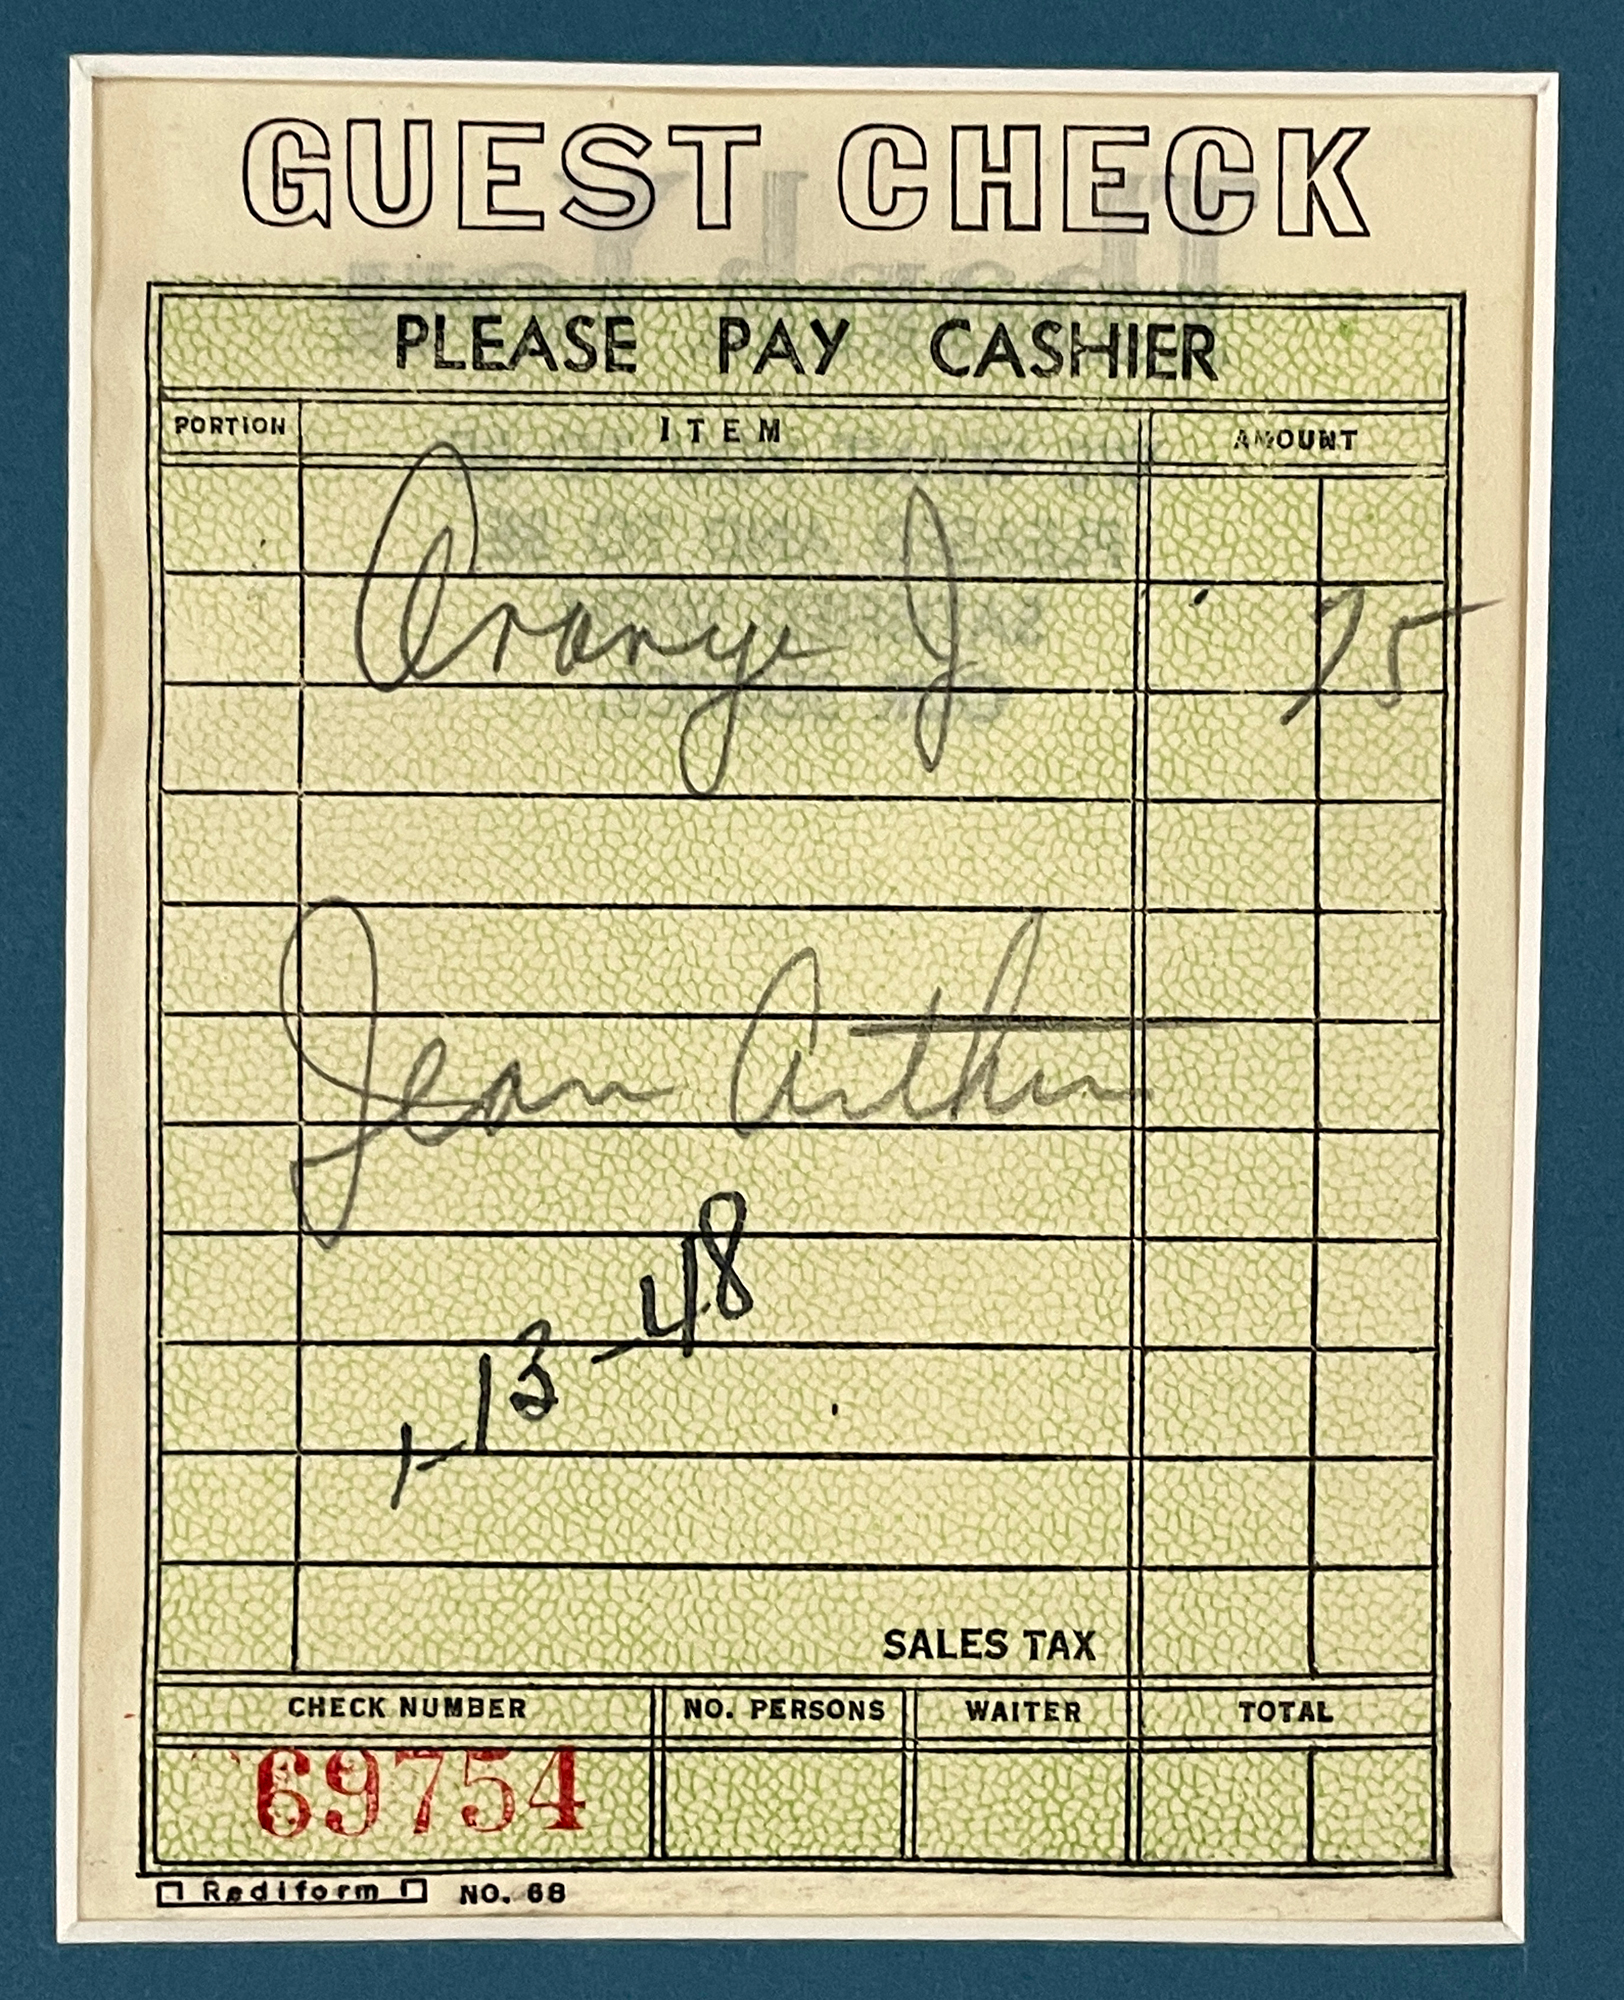 GUEST CHECK
PLEASE PAY CASHIER
PORTION ITEM AMOUNT
Orange J 75
Jean Arthur
1-13-48
SALES TAX
CHECK NUMBER NO. PERSONS WAITER TOTAL
69754
Rediform NO. 68